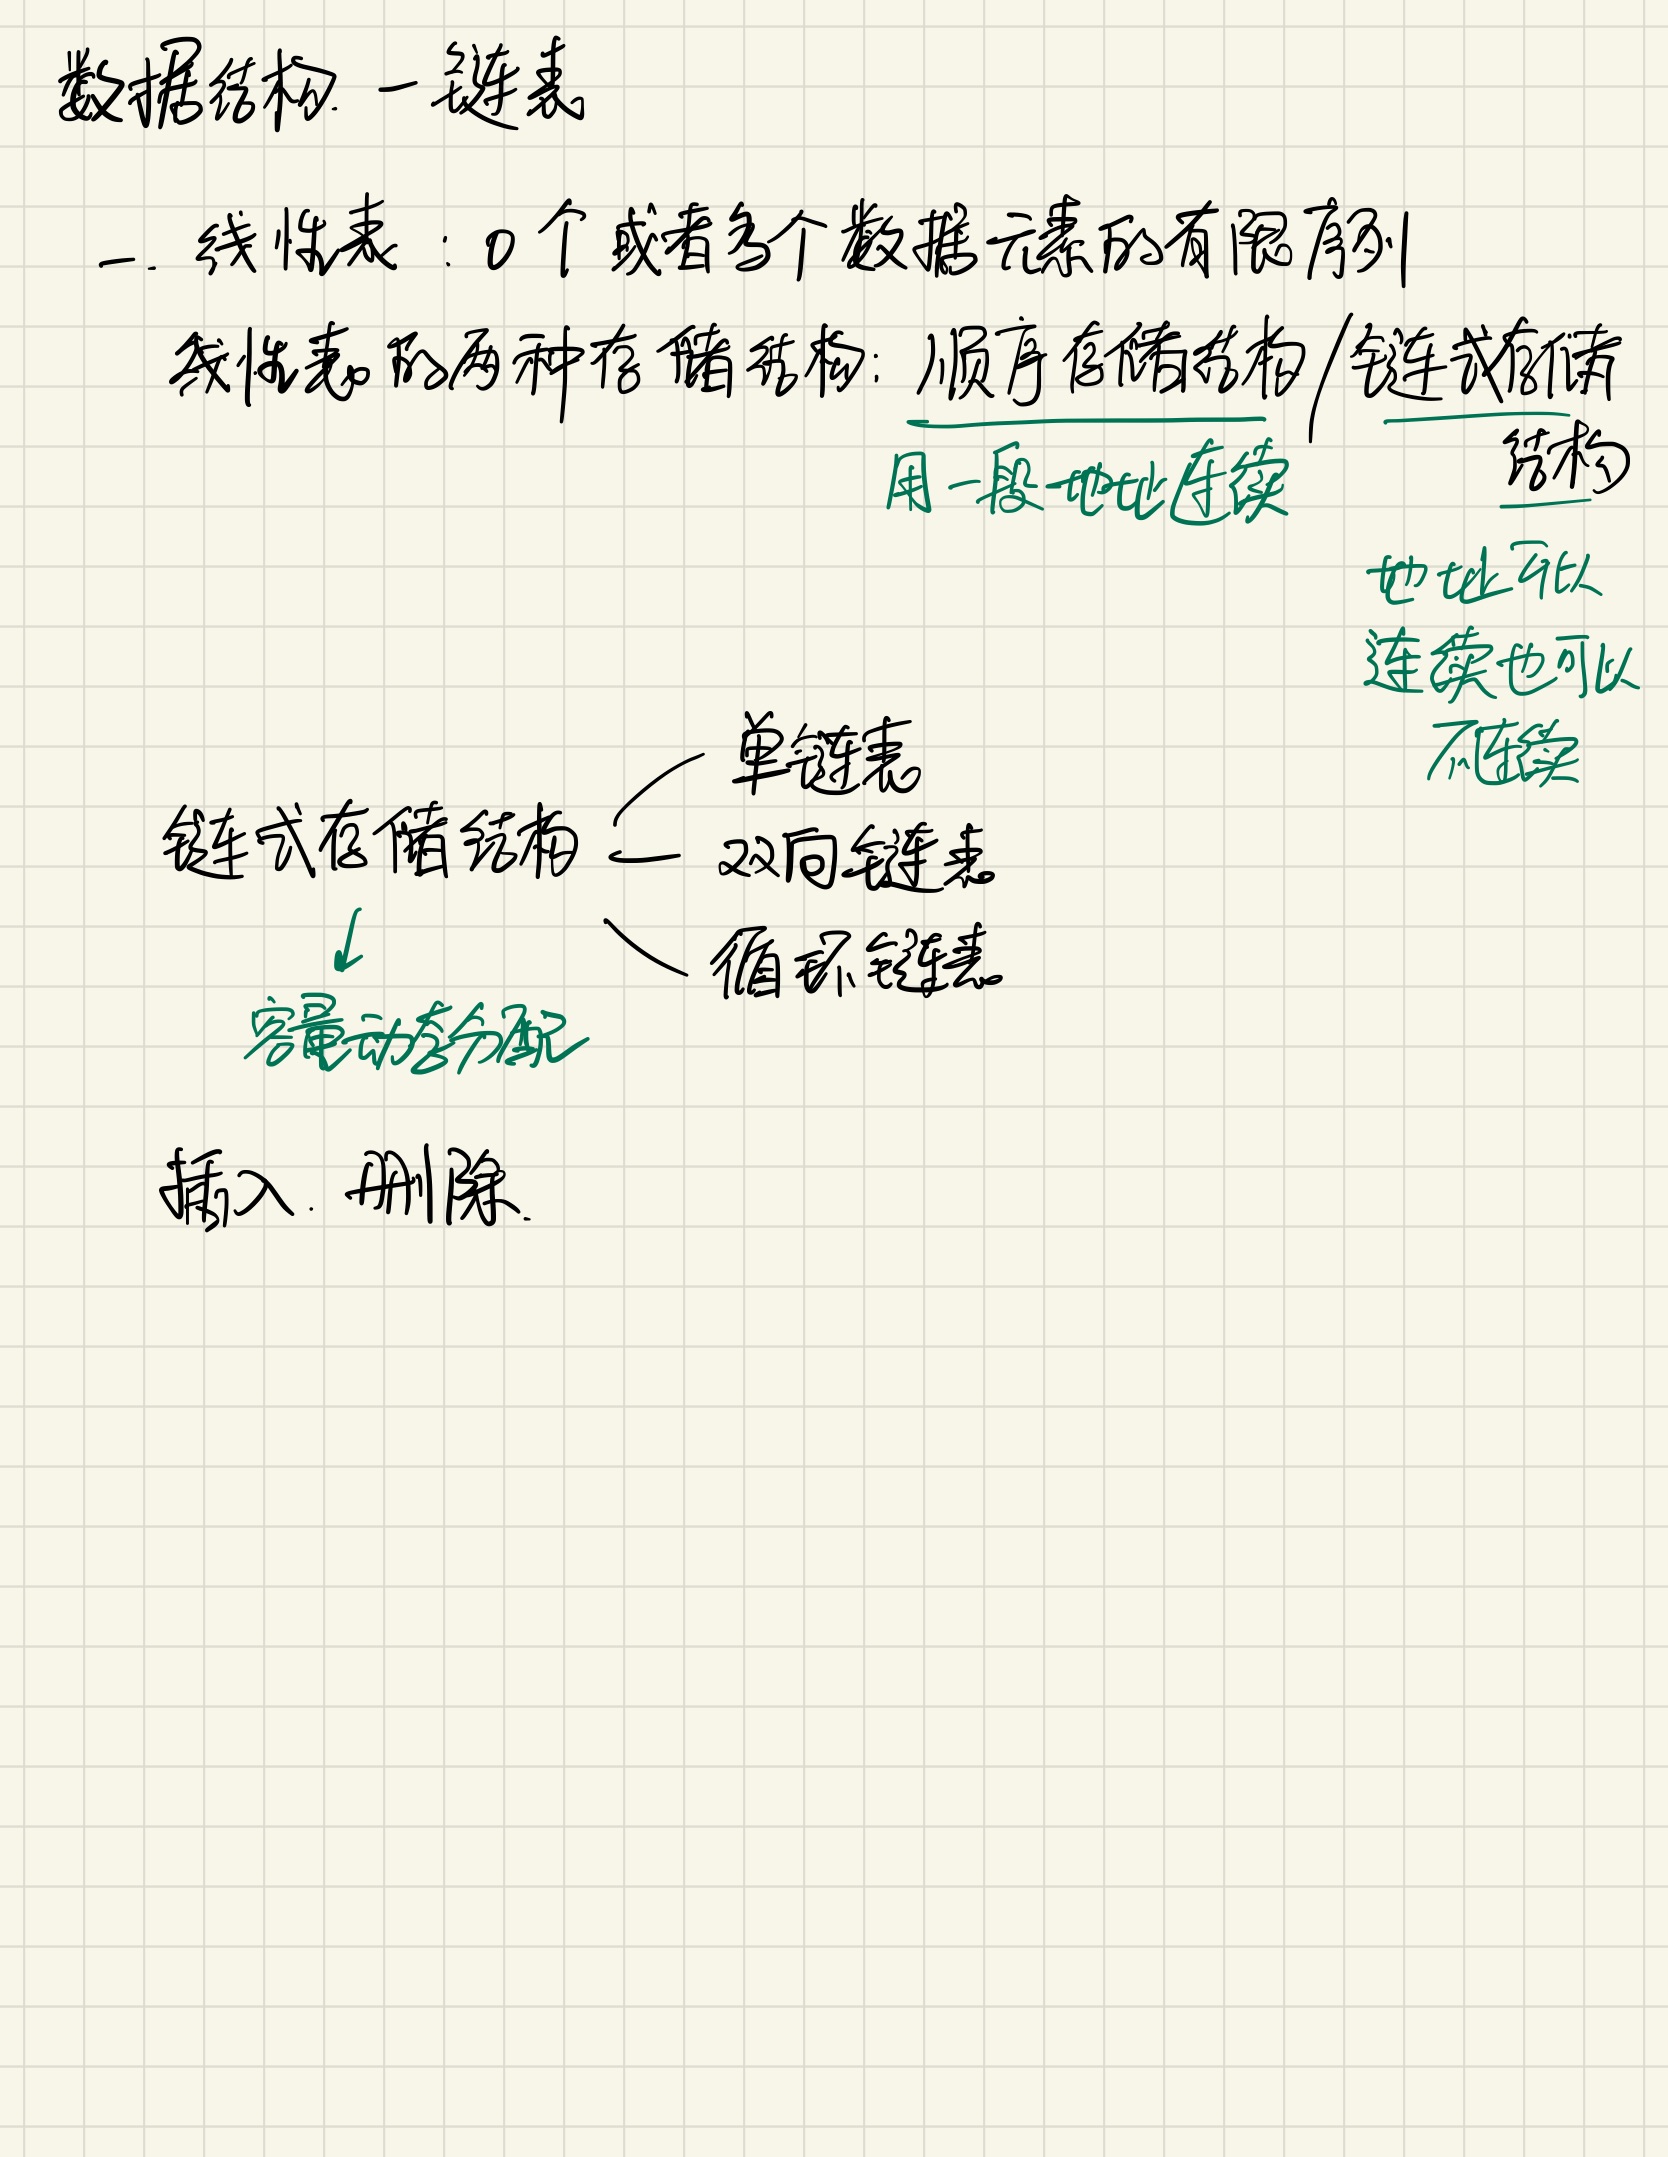 数据结构.一链表
一.线性表:0个或者多个数据元素的有限序列
线性表的两种存储结构:顺序存储结构/链式存储
结构
用一段地址连续
地址可以
连续也可以
不连续
单链表
链式存储结构
双向链表
循环链表
容量动态分配
插入.删除.